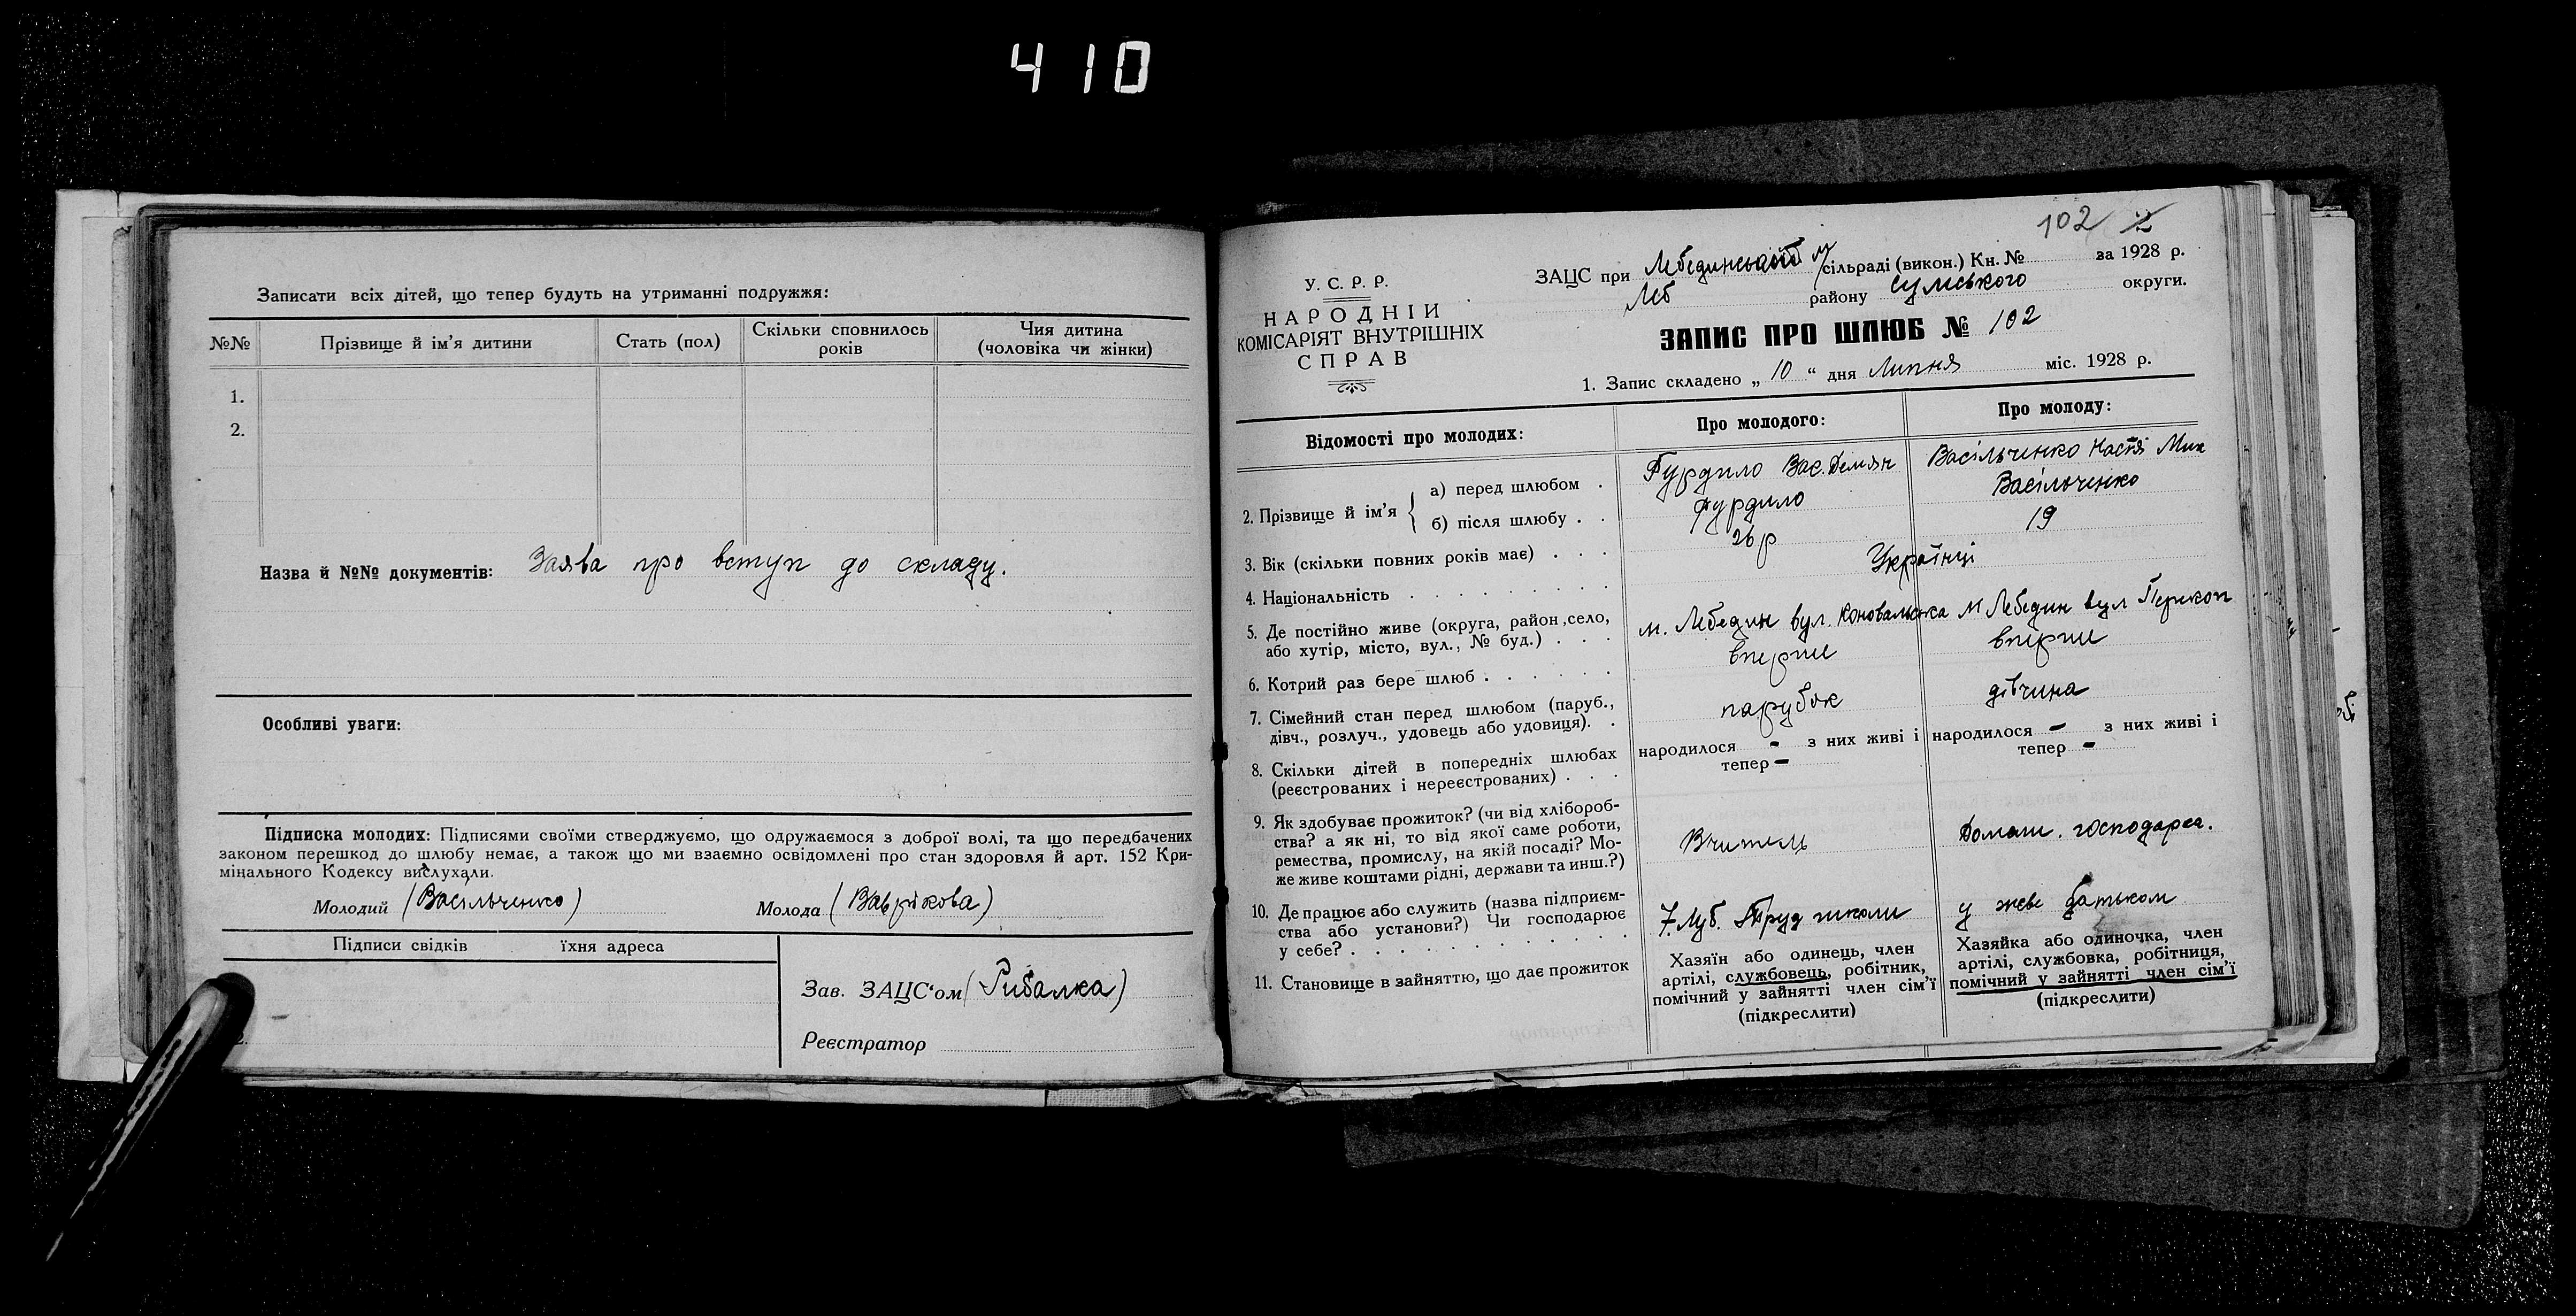 410
Записати всіх дітей, що тепер будуть на утриманні подружжя:
№№ Прізвище й ім'я дитини Стать (пол) Скільки сповнилось років Чия дитина (чоловіка чи жінки)
1.
2.
Назва й №№ документів: Заява про вступ до складу.
Особливі уваги:
Підписка молодих: Підписями своїми стверджуємо, що одружаємося з доброї волі, та що передбачених
законом перешкод до шлюбу немає, а також що ми взаємно освідомлені про стан здоровля й арт. 152 Кри-
мінального Кодексу вислухали.
Молодий (Васільченко) Молода (Ваврікова)
Підписи свідків їхня адреса
Зав. ЗАЦС'ом (Рибалка)
2.
Реєстратор
102 2
У. С. Р. Р.
НАРОДНІЙ
КОМІСАРІЯТ ВНУТРІШНІХ
СПРАВ
ЗАЦС при Лебединській м/сільраді (викон.) Кн. № за 1928 р.
Леб району Сумського округи.
ЗАПИС ПРО ШЛЮБ № 102
1. Запис складено „10“ дня Липня міс. 1928 р.
Відомості про молодих: Про молодого: Про молоду:
2. Прізвище й ім'я
а) перед шлюбом . Гурдило Вас. Демян Васільченко Настя Мик
б) після шлюбу . . Гурдило Васільченко
3. Вік (скільки повних років має) . . . 26 р 19
4. Національність . . . . . . . . . Українці
5. Де постійно живе (округа, район, село,
або хутір, місто, вул., № буд.) . . . м. Лебедин вул. Коновальська м Лебедин вул Перекоп
6. Котрий раз бере шлюб . . . . . . вперше вперше
7. Сімейний стан перед шлюбом (паруб.,
дівч., розлуч., удовець або удовиця). . парубок дівчина
8. Скільки дітей в попередніх шлюбах
(реєстрованих і нереєстрованих) . . .
народилося - з них живі і
тепер -
народилося - з них живі і
тепер -
9. Як здобуває прожиток? (чи від хлібороб-
ства? а як ні, то від якої саме роботи,
ремества, промислу, на якій посаді? Мо-
же живе коштами рідні, держави та инш.?)
Вчитель Домаш. господарка.
10. Де працює або служить (назва підприєм-
ства або установи?) Чи господарює
у себе? . . . . . . . . . . .
Труд школи у батьком
11. Становище в зайняттю, що дає прожиток
Хазяїн або одинець, член
артілі, службовець, робітник,
помічний у зайнятті член сім'ї
(підкреслити)
Хазяйка або одиночка, член
артілі, службовка, робітниця,
помічний у зайнятті член сім'ї
(підкреслити)